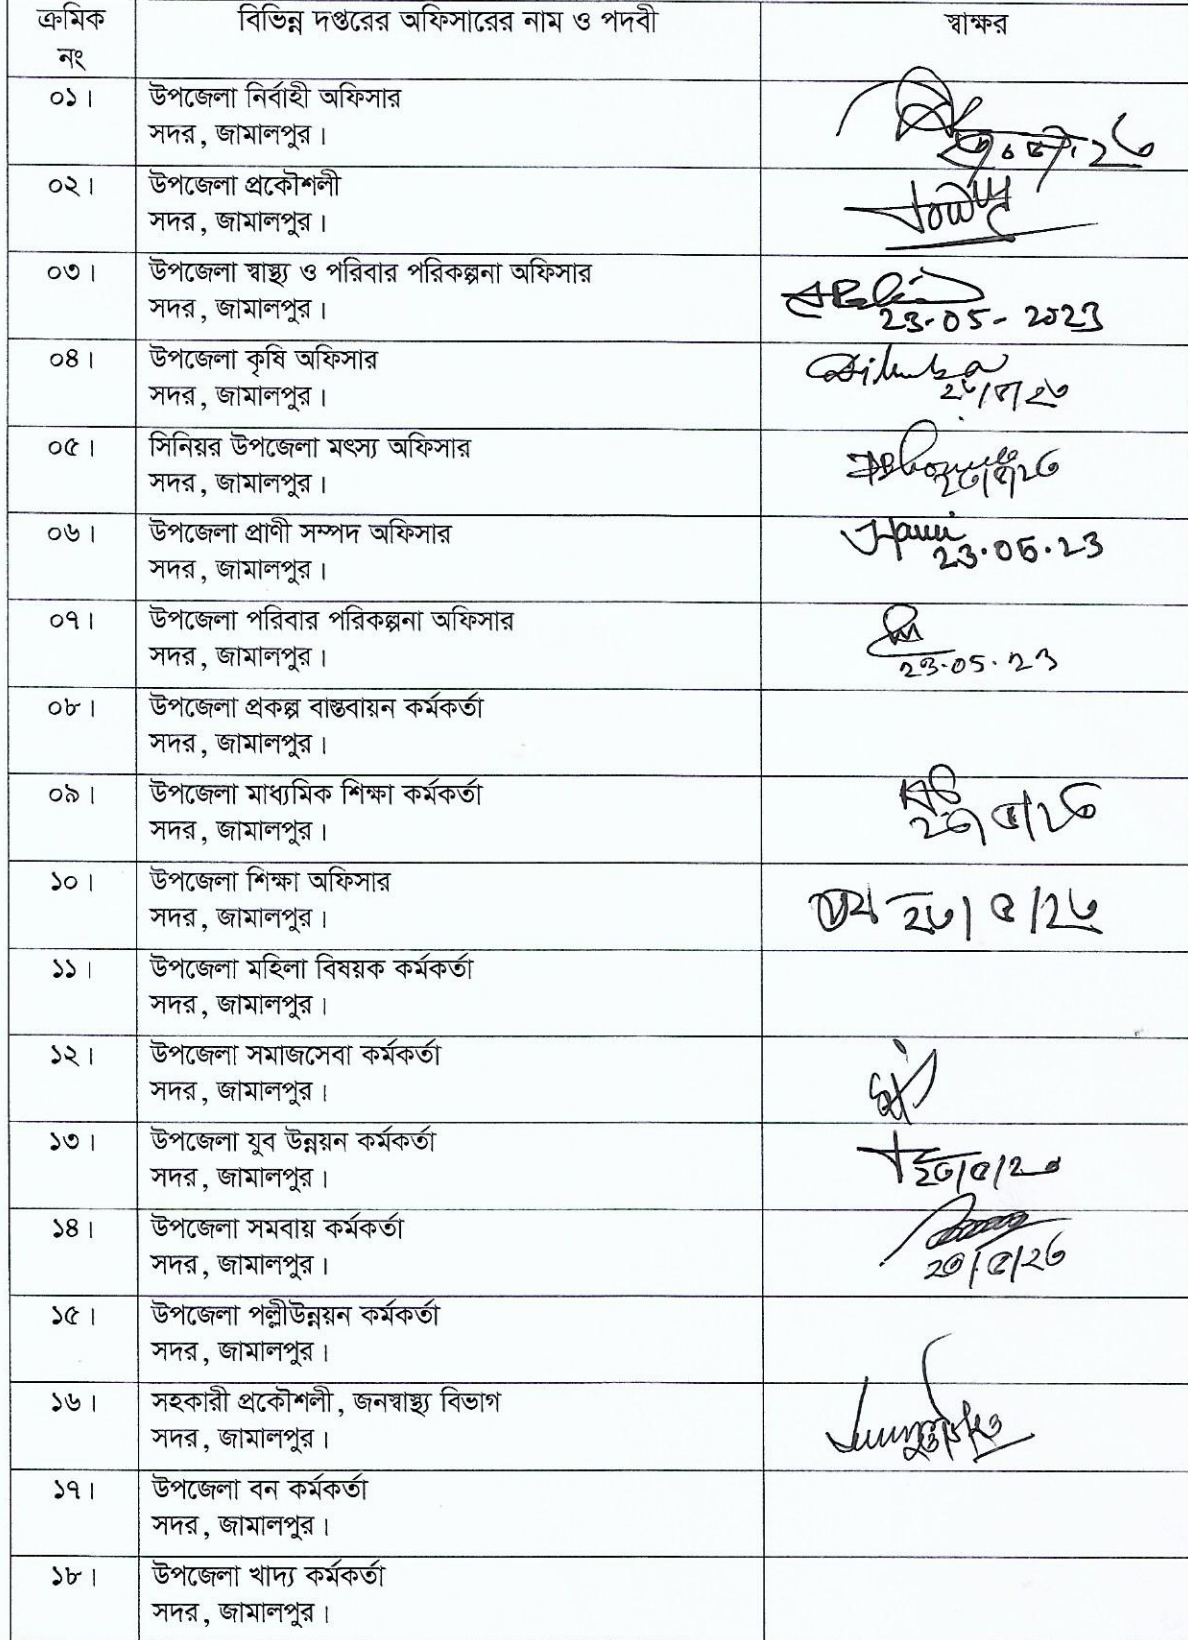 ক্রমিক নং বিভিন্ন দপ্তরের অফিসারের নাম ও পদবী স্বাক্ষর
০১। উপজেলা নির্বাহী অফিসার
সদর, জামালপুর।
০২। উপজেলা প্রকৌশলী
সদর, জামালপুর।
০৩। উপজেলা স্বাস্থ্য ও পরিবার পরিকল্পনা অফিসার
সদর, জামালপুর।
23-05-2023
০৪। উপজেলা কৃষি অফিসার
সদর, জামালপুর।
২৩/৫/২৩
০৫। সিনিয়র উপজেলা মৎস্য অফিসার
সদর, জামালপুর।
২৩/৫/২৩
০৬। উপজেলা প্রাণী সম্পদ অফিসার
সদর, জামালপুর।
23.05.23
০৭। উপজেলা পরিবার পরিকল্পনা অফিসার
সদর, জামালপুর।
23.05.23
০৮। উপজেলা প্রকল্প বাস্তবায়ন কর্মকর্তা
সদর, জামালপুর।
০৯। উপজেলা মাধ্যমিক শিক্ষা কর্মকর্তা
সদর, জামালপুর।
২৩/৫/২৩
১০। উপজেলা শিক্ষা অফিসার
সদর, জামালপুর।
২৩/৫/২৩
১১। উপজেলা মহিলা বিষয়ক কর্মকর্তা
সদর, জামালপুর।
১২। উপজেলা সমাজসেবা কর্মকর্তা
সদর, জামালপুর।
১৩। উপজেলা যুব উন্নয়ন কর্মকর্তা
সদর, জামালপুর।
২৩/৫/২৩
১৪। উপজেলা সমবায় কর্মকর্তা
সদর, জামালপুর।
২৩/৫/২৩
১৫। উপজেলা পল্লীউন্নয়ন কর্মকর্তা
সদর, জামালপুর।
১৬। সহকারী প্রকৌশলী, জনস্বাস্থ্য বিভাগ
সদর, জামালপুর।
১৭। উপজেলা বন কর্মকর্তা
সদর, জামালপুর।
১৮। উপজেলা খাদ্য কর্মকর্তা
সদর, জামালপুর।